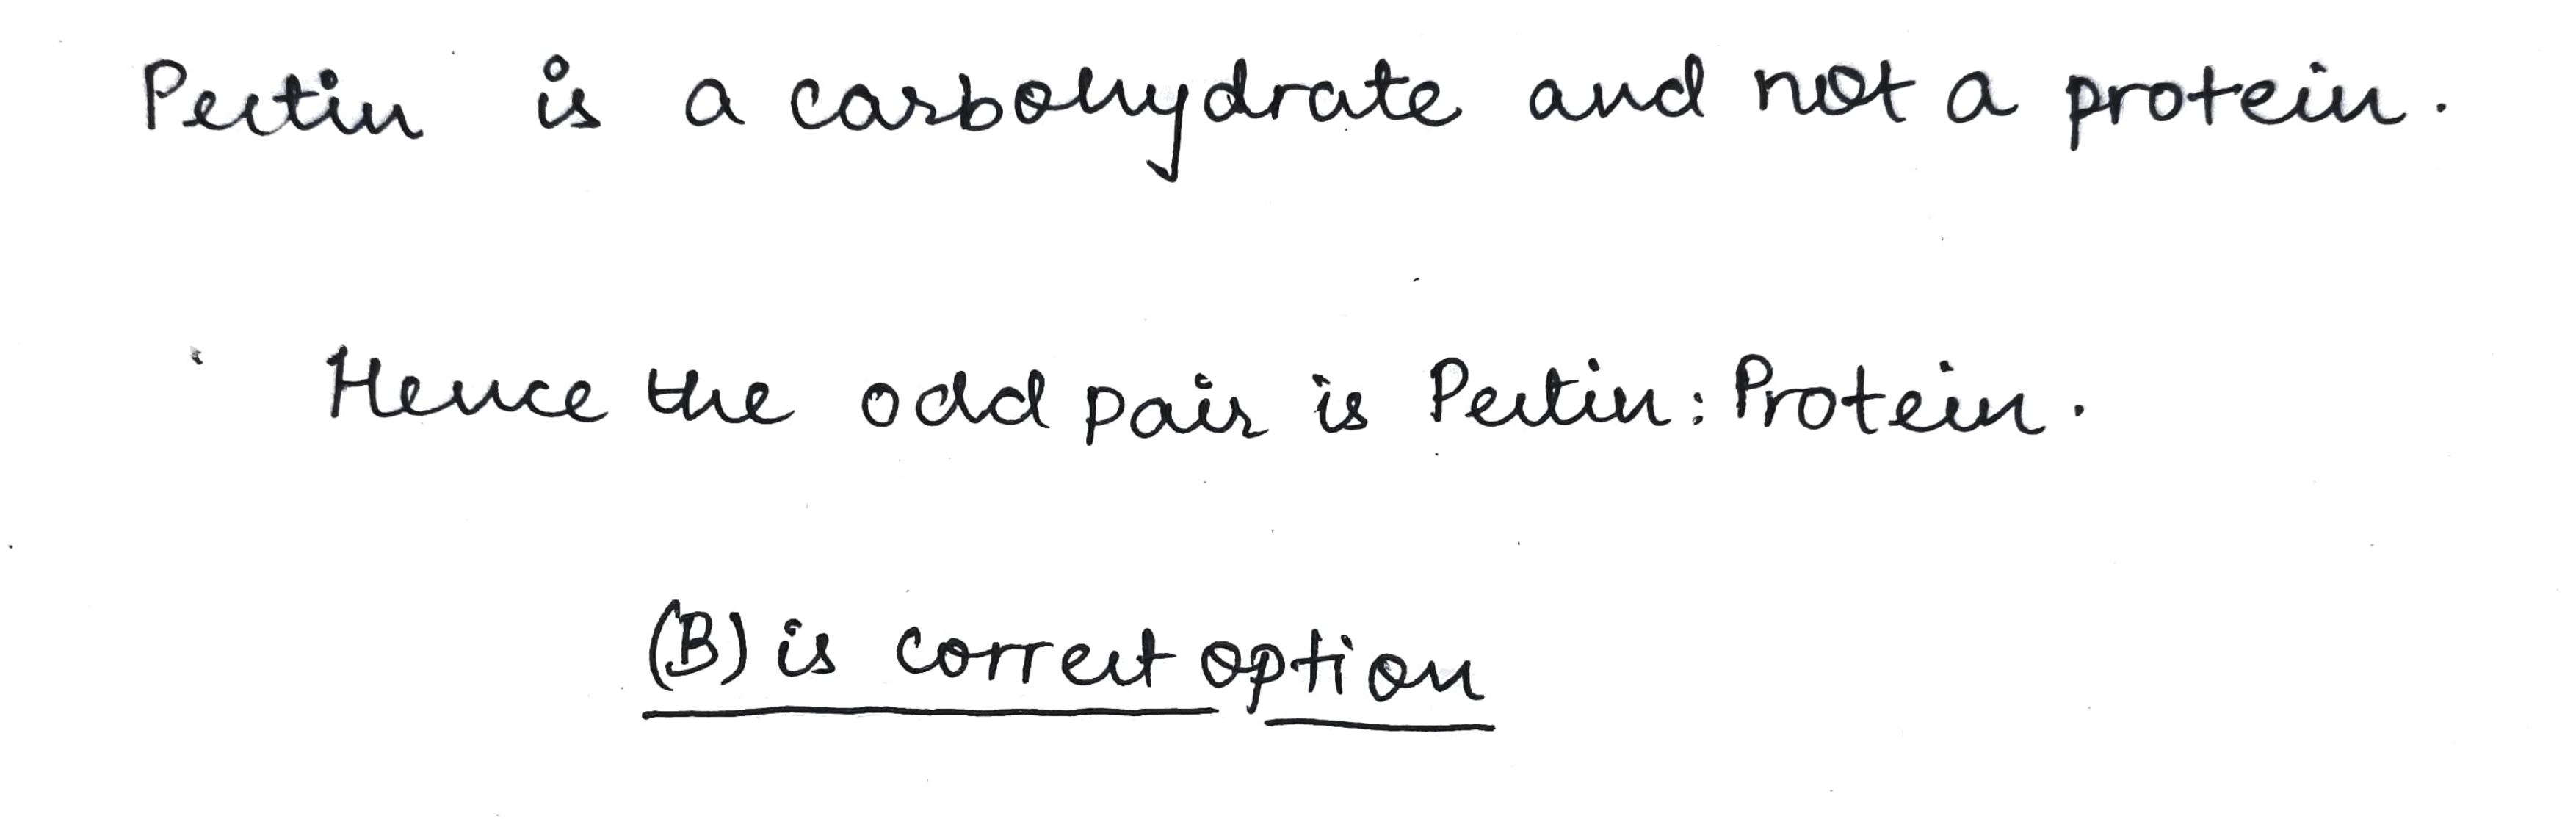 Pectin is a carbohydrate and not a protein.
Hence the odd pair is Pectin : Protein.
(B) is correct option